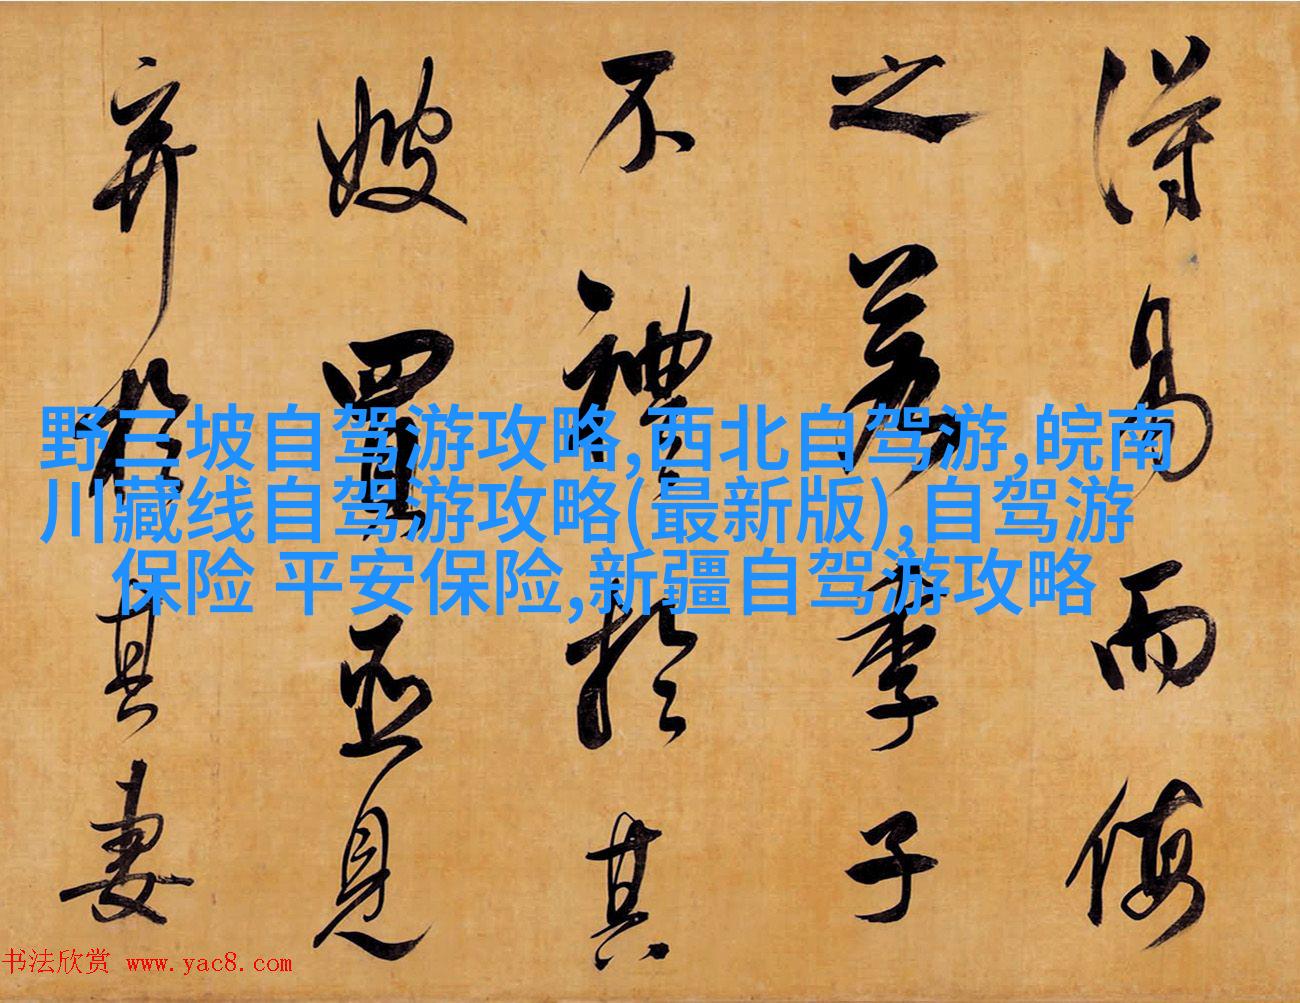 得易而侮
之若季子
不禮於其
嫂買臣見
弃於其妻
野三坡自驾游攻略,西北自驾游,皖南
川藏线自驾游攻略(最新版),自驾游
保险 平安保险,新疆自驾游攻略
书法欣赏 www.yac8.com